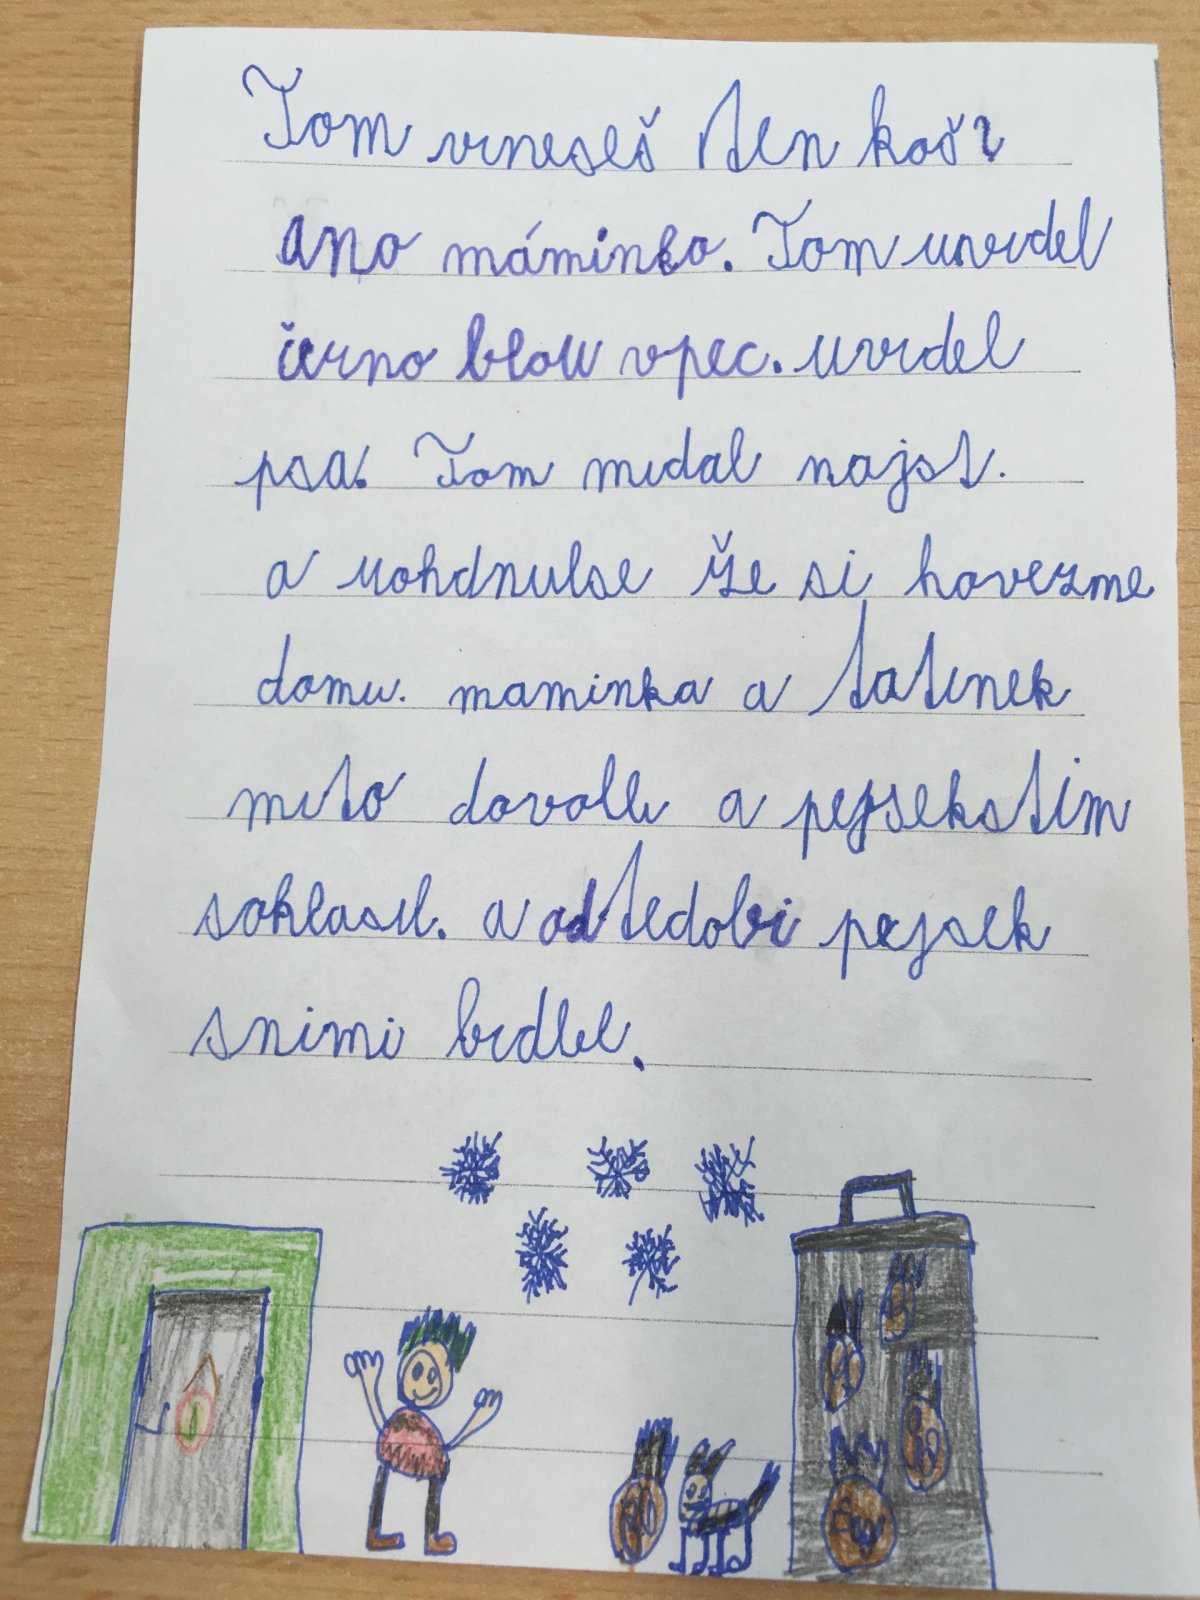 Tom vineseš ten koš?
ano máminko. Tom uvidel
černo blou vpec. uvidel
psa. Tom midal najst.
a uohdnulse že si hovezme
domu. maminka a tatinek
mito dovolli a pejsekstim
sohlasil. a odtedobi pejsek
snimi bidlel.